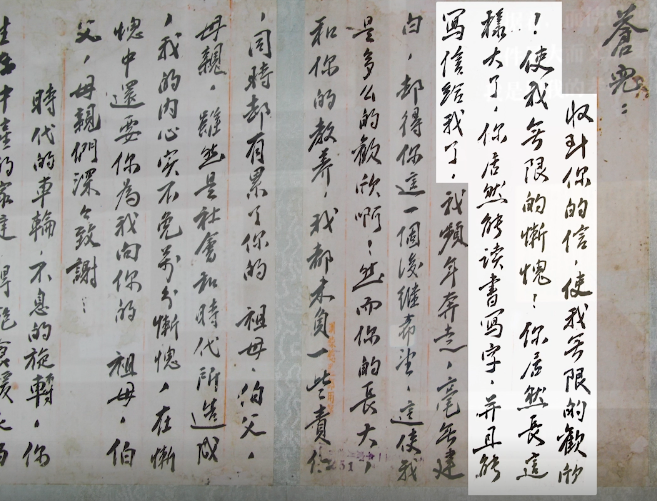 蒼兒：
收到你的信，使我無限的歡欣
！使我無限的慚愧！你居然長這
樣大了，你居然能读書寫字，并且能
寫信給我了，我頻年奔走，毫無建
白，却得你這一個後继希望，這使我
是多么的歡欣啊！然而你的長大，
和你的教养，我都未負一些責任
，同時却有累了你的 祖母，伯父，
母親，雖然是社會和時代所造成
，我的内心实不免萬分慚愧，在慚
愧中還要你為我向你的 祖母，伯
父，母親們深々致謝：
時代的車輪，不息的旋轉，你
中產的家庭，得飽食